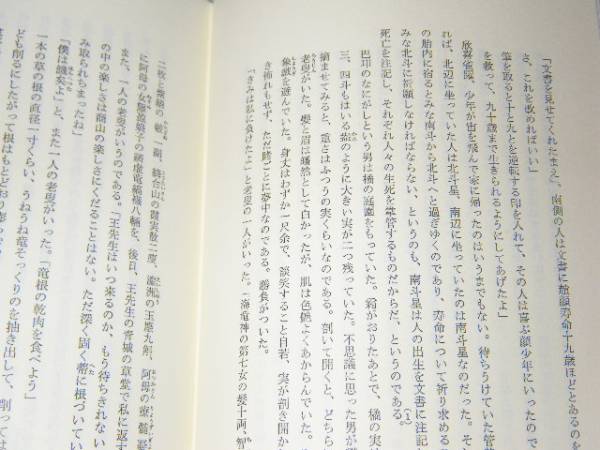 「文書を見せてくれたまえ」南側の人は文書に趙顔寿命十九歳ほどとあるのを
さ、これを改めればいい」
筆を取ると十と九とを逆転する印を入れて、その人は喜ぶ顔少年にいったので
を救って、九十歳まで生きられるようにしてあげたよ」
欣喜雀躍、少年が宙を飛んで家に帰ったのはいうまでもない。待ちうけていた管
れば、北辺に坐っていた人は北斗星、南辺に坐っていたのは南斗星なのだった。そ
の胎内に宿るとみな南斗から北斗へと過ぎゆくのであり、寿命について祈り求める
みな北斗に祈願しなければならない、というのも、南斗星は人の出生を文書に注記
死亡を注記し、それぞれ人々の生死を掌管するものだからだ、というのである。
巴邛のなにがしという男は橘の庭園をもっていた。霜がおりたあとで、橘の実
三、四斗もはいる のように大きい実が二つ残っていた。不思議に思った男が
摘ませてみると、重さはふつうの実くらいなのである。剖いて開くと、どちら
老叟がいた。鬢と眉は皤然として白かったが、肌は色艶よくあからんでいた。
象戯を遊んでいた。身丈はわずか一尺余で、談笑すること自若、実が剖き開か
き怖れもせず、ただ賭ごとに夢中なのである。勝負がついた。
「きみは私に負けたよ」と老叟の一人がいった。「海竜神の第七女の髪十両、智
二枚と紫絹の 一副、絳台山の霞実散二庾、瀛洲の玉塵九斛、阿母の
に阿母の 娘子の躋虚竜縞襪八 を、後日、王先生の青城の草堂で私に返す
また、一人の老叟がいうのである。「王先生はいつ来るのか、もう待ちきれない
の中の楽しさは商山の楽しさにくだることはない。ただ深く固く蔕に根づいてい
み取られちまったね」
「僕は餓えたよ」と、また一人の老叟がいった。「竜根の乾肉を食べよう」
一本の草の根の直径一寸くらい、うねうね竜そっくりのを抽き出して、削っては
ども削るにしたがって根はもとどおり